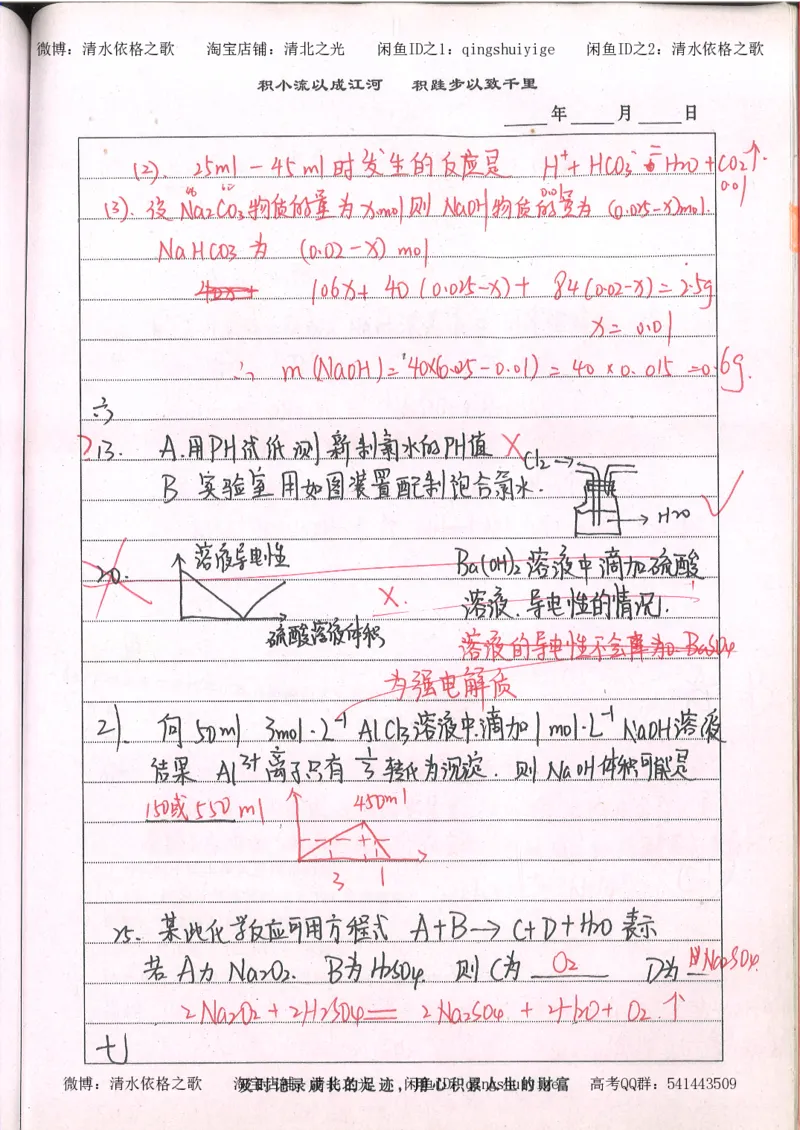 微博：清水依格之歌 淘宝店铺：清北之光 闲鱼ID之1：qingshuiyige 闲鱼ID之2：清水依格之歌
积小流以成江河 积跬步以致千里
年 月 日
(2). 25ml - 45ml时发生的反应是 H⁺ + HCO₃⁻ = H₂O + CO₂↑.
0.01
(3). 设Na₂CO₃物质的量为x mol 则NaOH物质的量为 (0.025-x)mol.
NaHCO₃为 (0.02-x) mol
106x + 40(0.025-x) + 84(0.02-x) = 2.5g
x = 0.01
∴ m(NaOH) = 40×(0.025-0.01) = 40 × 0.015 = 0.6g.
六
13. A.用PH试纸测新制氯水的PH值 ×
B 实验室用如图装置配制饱合氯水.
Cl₂ →
→ H₂O
20. 溶液导电性
硫酸溶液体积
Ba(OH)₂溶液中滴加硫酸
溶液.导电性的情况.
×
溶液的导电性不会降为0. BaSO₄
为强电解质
21. 向50ml 3mol·L⁻¹ AlCl₃溶液中滴加1mol·L⁻¹ NaOH溶液
结果 Al³⁺离子只有⅓转化为沉淀. 则NaOH体积可能是
150或550 ml
450ml
3 1
25. 某化学反应可用方程式 A+B→C+D+H₂O 表示
若A为Na₂O₂. B为H₂SO₄. 则C为 O₂ D为 Na₂SO₄.
2Na₂O₂ + 2H₂SO₄ = 2Na₂SO₄ + 2H₂O + O₂↑
七
及时记录成长的足迹，用心积累人生的财富
微博：清水依格之歌 淘宝店铺：清北之光 闲鱼ID之1：qingshuiyige 高考QQ群：541443509